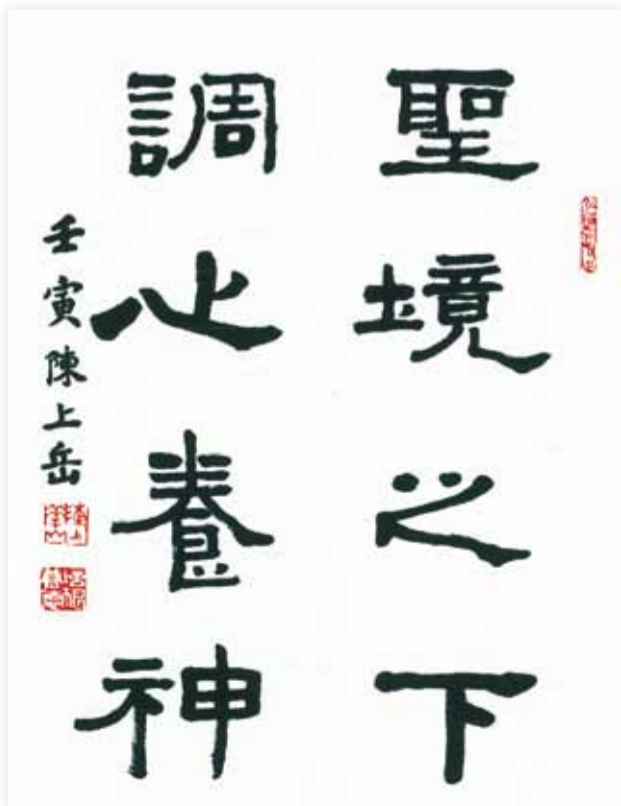 聖境之下
調心養神
壬寅陳上岳